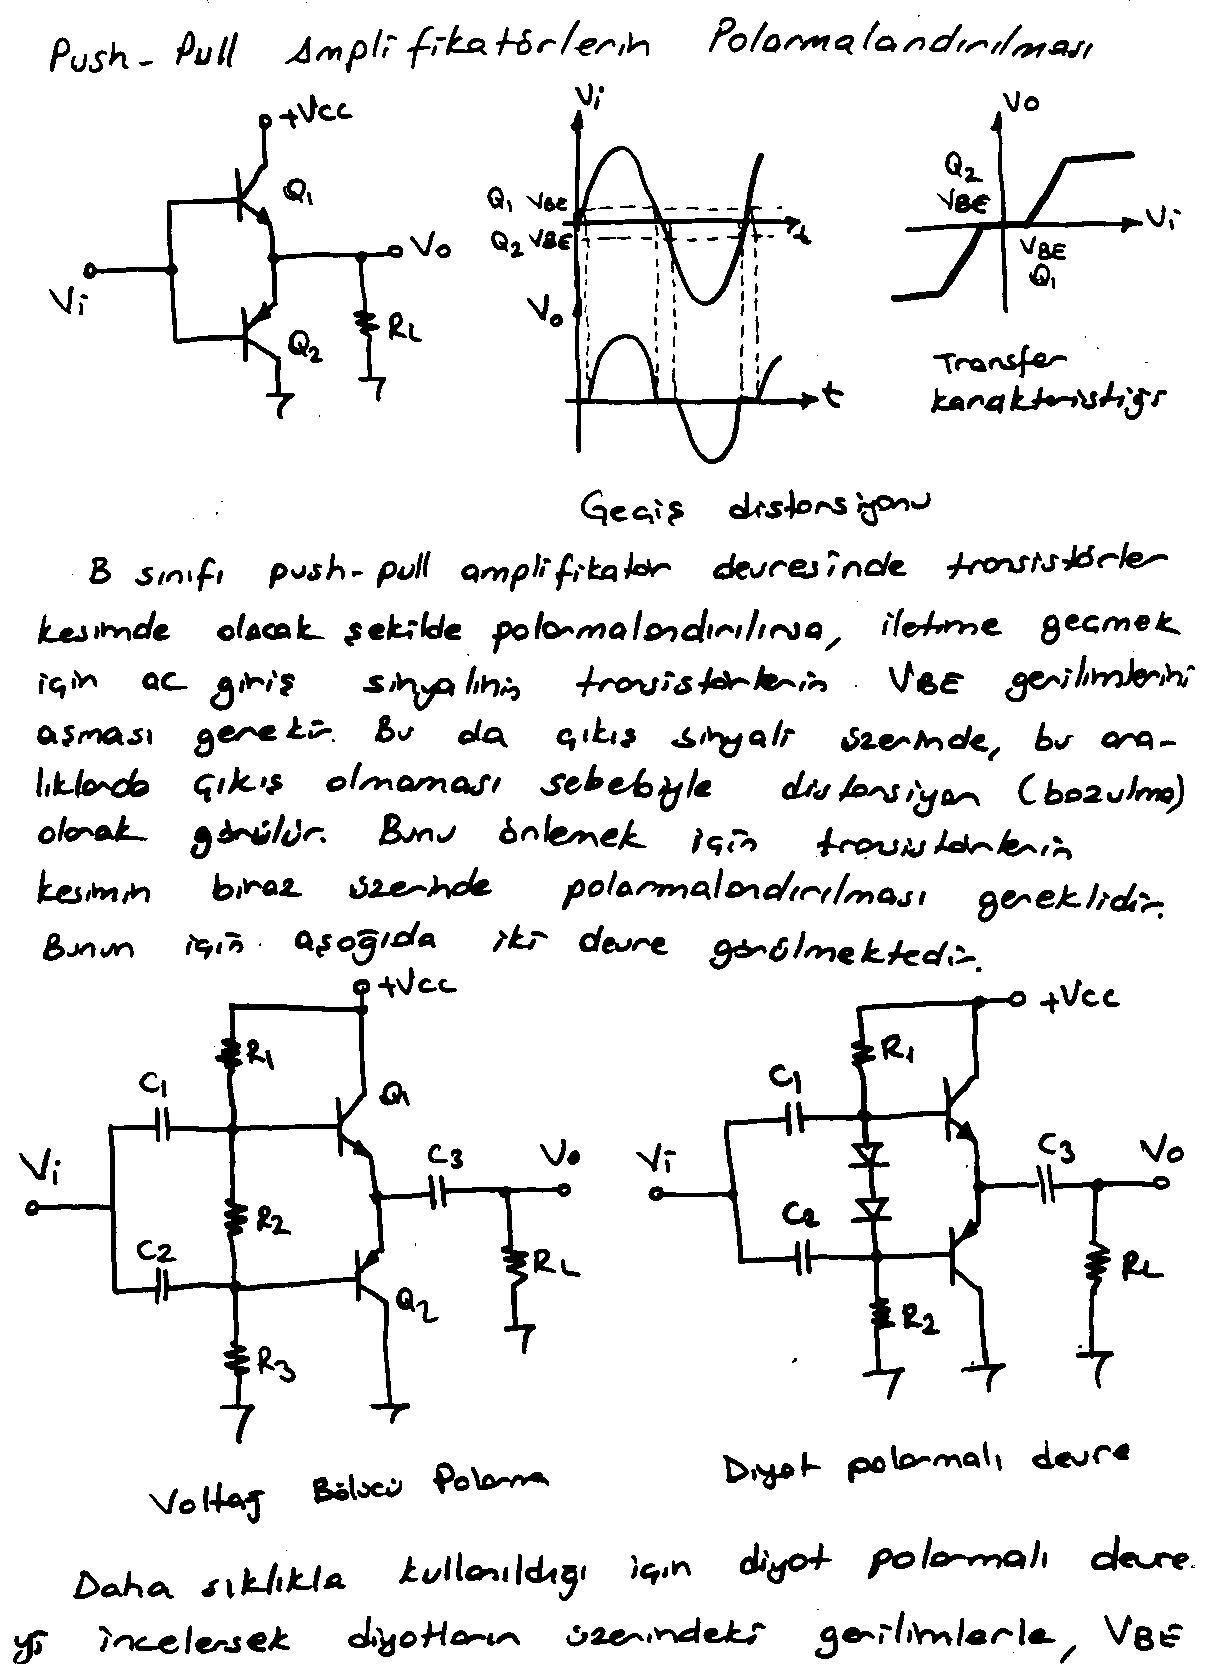 Push-Pull Amplifikatörlerin Polarmalandırılması
+Vcc
Q1
Vi
Vo
RL
Q2
Vi
Q1 VBE
Q2 VBE
t
Vo
t
Vo
Q2
VBE
Vi
VBE
Q1
Transfer
karakteristiği
Geçiş distorsiyonu
B sınıfı push-pull amplifikatör devresinde transistörler
kesimde olacak şekilde polarmalandırılırsa, iletime geçmek
için ac giriş sinyalinin transistörlerin VBE gerilimlerini
aşması gerekir. Bu da çıkış sinyali üzerinde, bu ara-
lıklarda çıkış olmaması sebebiyle distorsiyon (bozulma)
olarak görülür. Bunu önlemek için transistörlerin
kesimin biraz üzerinde polarmalandırılması gereklidir.
Bunun için aşağıda iki devre görülmektedir.
+Vcc
R1
C1
Q1
Vi
C3
Vo
R2
C2
RL
Q2
R3
Voltaj Bölücü Polarma
+Vcc
R1
C1
Vi
C3
Vo
C2
RL
R2
Diyot polarmalı devre
Daha sıklıkla kullanıldığı için diyot polarmalı devre-
yi incelersek diyotların üzerindeki gerilimlerle, VBE